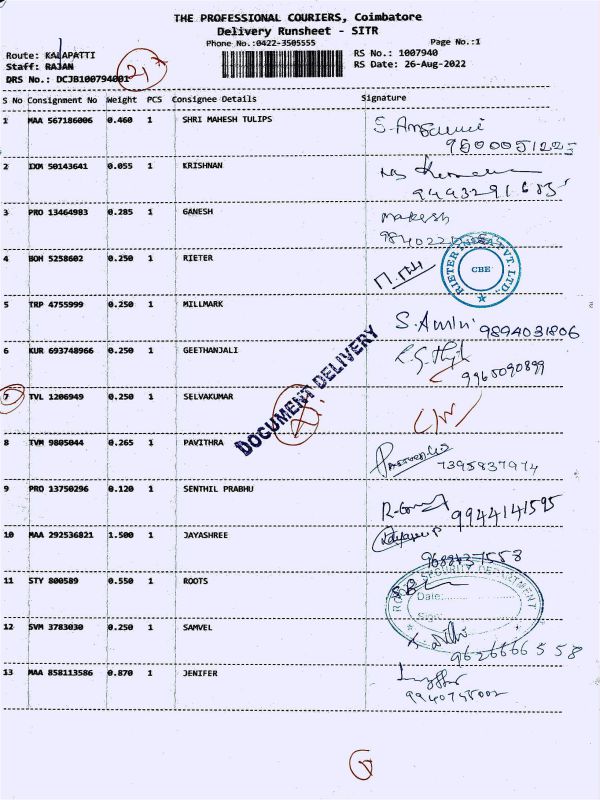 THE PROFESSIONAL COURIERS, Coimbatore
Delivery Runsheet - SITR
Phone No.:0422-3505555
Page No.:1
Route: KALAPATTI
RS No.: 1007940
Staff: RAJAN
RS Date: 26-Aug-2022
DRS No.: DCJB100794001
S No Consignment No Weight PCS Consignee Details Signature
1 MAA 567186006 0.460 1 SHRI MAHESH TULIPS
2 IXM 50143641 0.055 1 KRISHNAN
3 PRO 13464983 0.285 1 GANESH
Makesh
4 BOM 5258602 0.250 1 RIETER
RIETER INDIA PVT. LTD.
CBE
5 TRP 4755999 0.250 1 MILLMARK
S. Amini 9894031806
6 KUR 693748966 0.250 1 GEETHANJALI
9965090899
DOCUMENT DELIVERY
7 TVL 1206949 0.250 1 SELVAKUMAR
8 TVM 9805044 0.265 1 PAVITHRA
7395837974
9 PRO 13750296 0.120 1 SENTHIL PRABHU
9944141595
10 MAA 292536821 1.500 1 JAYASHREE
11 STY 800589 0.550 1 ROOTS
ROOTS SECURITY DEPARTMENT
Date:
Sign:
12 SVM 3783030 0.250 1 SAMVEL
9626666558
13 MAA 858113586 0.870 1 JENIFER